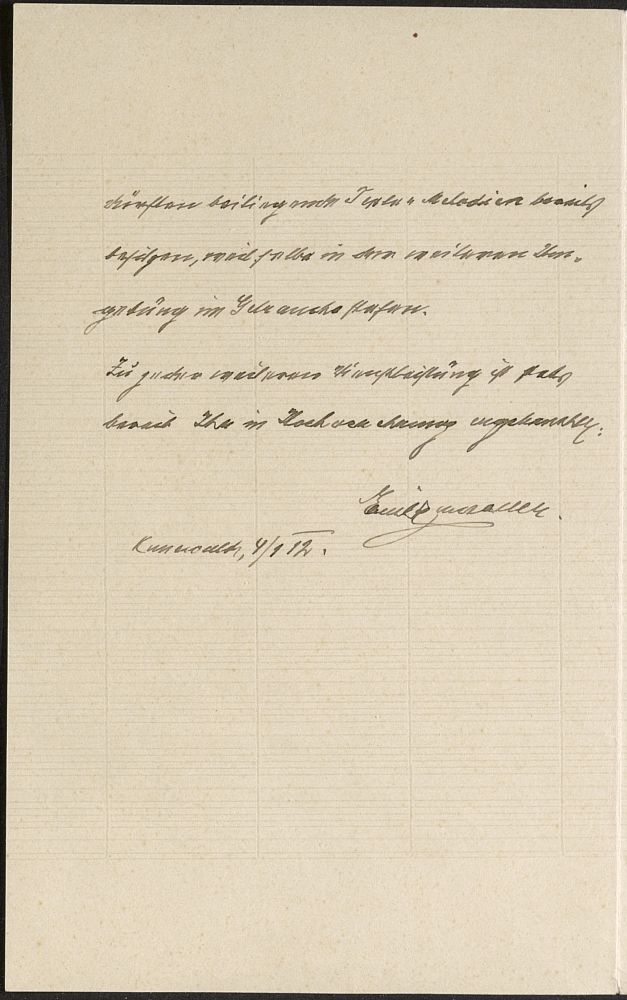 dürften beiliegende Texte u Melodien bereits
besitzen, weil selbe in der weiteren Um-
gebung im Gebrauche stehen.
Zu jeder weiteren Dienstleistung ist stets
bereit Ihr in Hochachtung ergebenster:
Emil
Kunewald, 4/1 12.